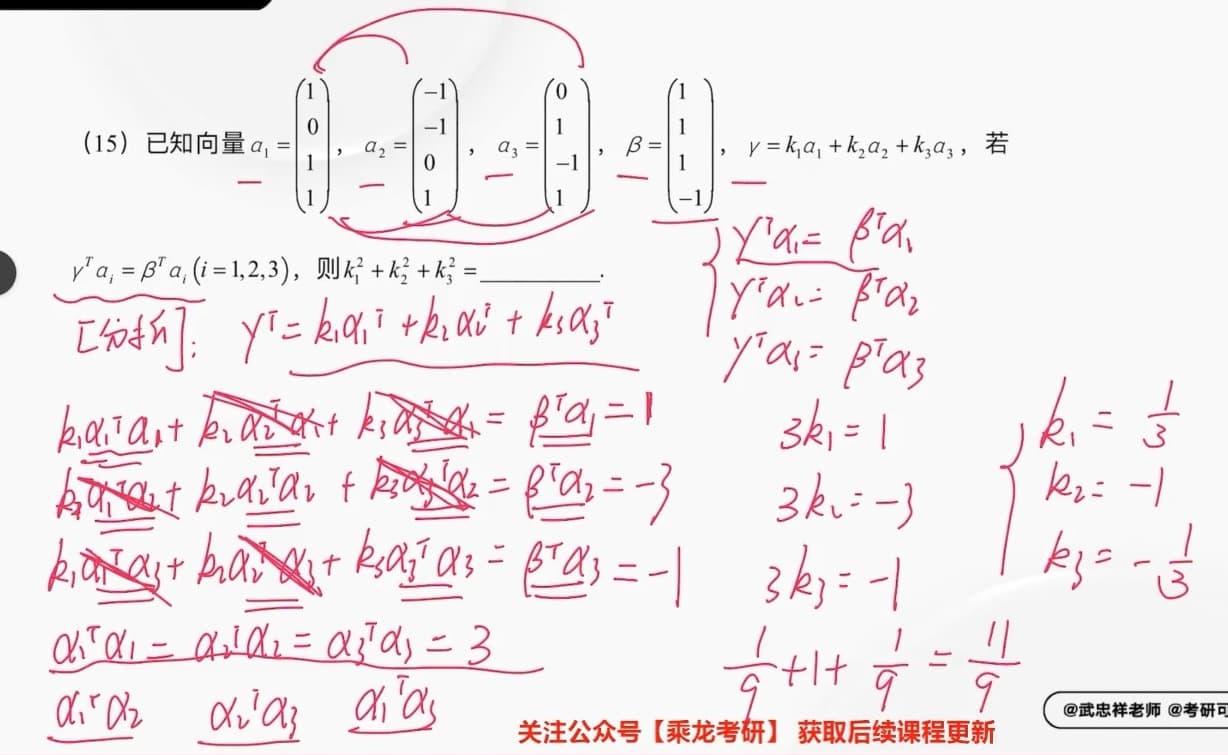 (15) 已知向量 α₁ = (1 0 1 1), α₂ = (−1 −1 0 1), α₃ = (0 1 −1 1), β = (1 1 1 −1), γ = k₁α₁ + k₂α₂ + k₃α₃, 若
γᵀαᵢ = βᵀαᵢ (i = 1,2,3), 则 k₁² + k₂² + k₃² = ________.
γᵀα₁ = βᵀα₁
γᵀα₂ = βᵀα₂
γᵀα₃ = βᵀα₃
[分析]: γᵀ = k₁α₁ᵀ + k₂α₂ᵀ + k₃α₃ᵀ
k₁α₁ᵀα₁ + k₂α₂ᵀα₁ + k₃α₃ᵀα₁ = βᵀα₁ = 1
k₁α₁ᵀα₂ + k₂α₂ᵀα₂ + k₃α₃ᵀα₂ = βᵀα₂ = −3
k₁α₁ᵀα₃ + k₂α₂ᵀα₃ + k₃α₃ᵀα₃ = βᵀα₃ = −1
α₁ᵀα₁ = α₂ᵀα₂ = α₃ᵀα₃ = 3
α₁ᵀα₂ α₂ᵀα₃ α₁ᵀα₃
3k₁ = 1
3k₂ = −3
3k₃ = −1
k₁ = 1/3
k₂ = −1
k₃ = −1/3
1/9 + 1 + 1/9 = 11/9
关注公众号【乘龙考研】 获取后续课程更新
@武忠祥老师 @考研可